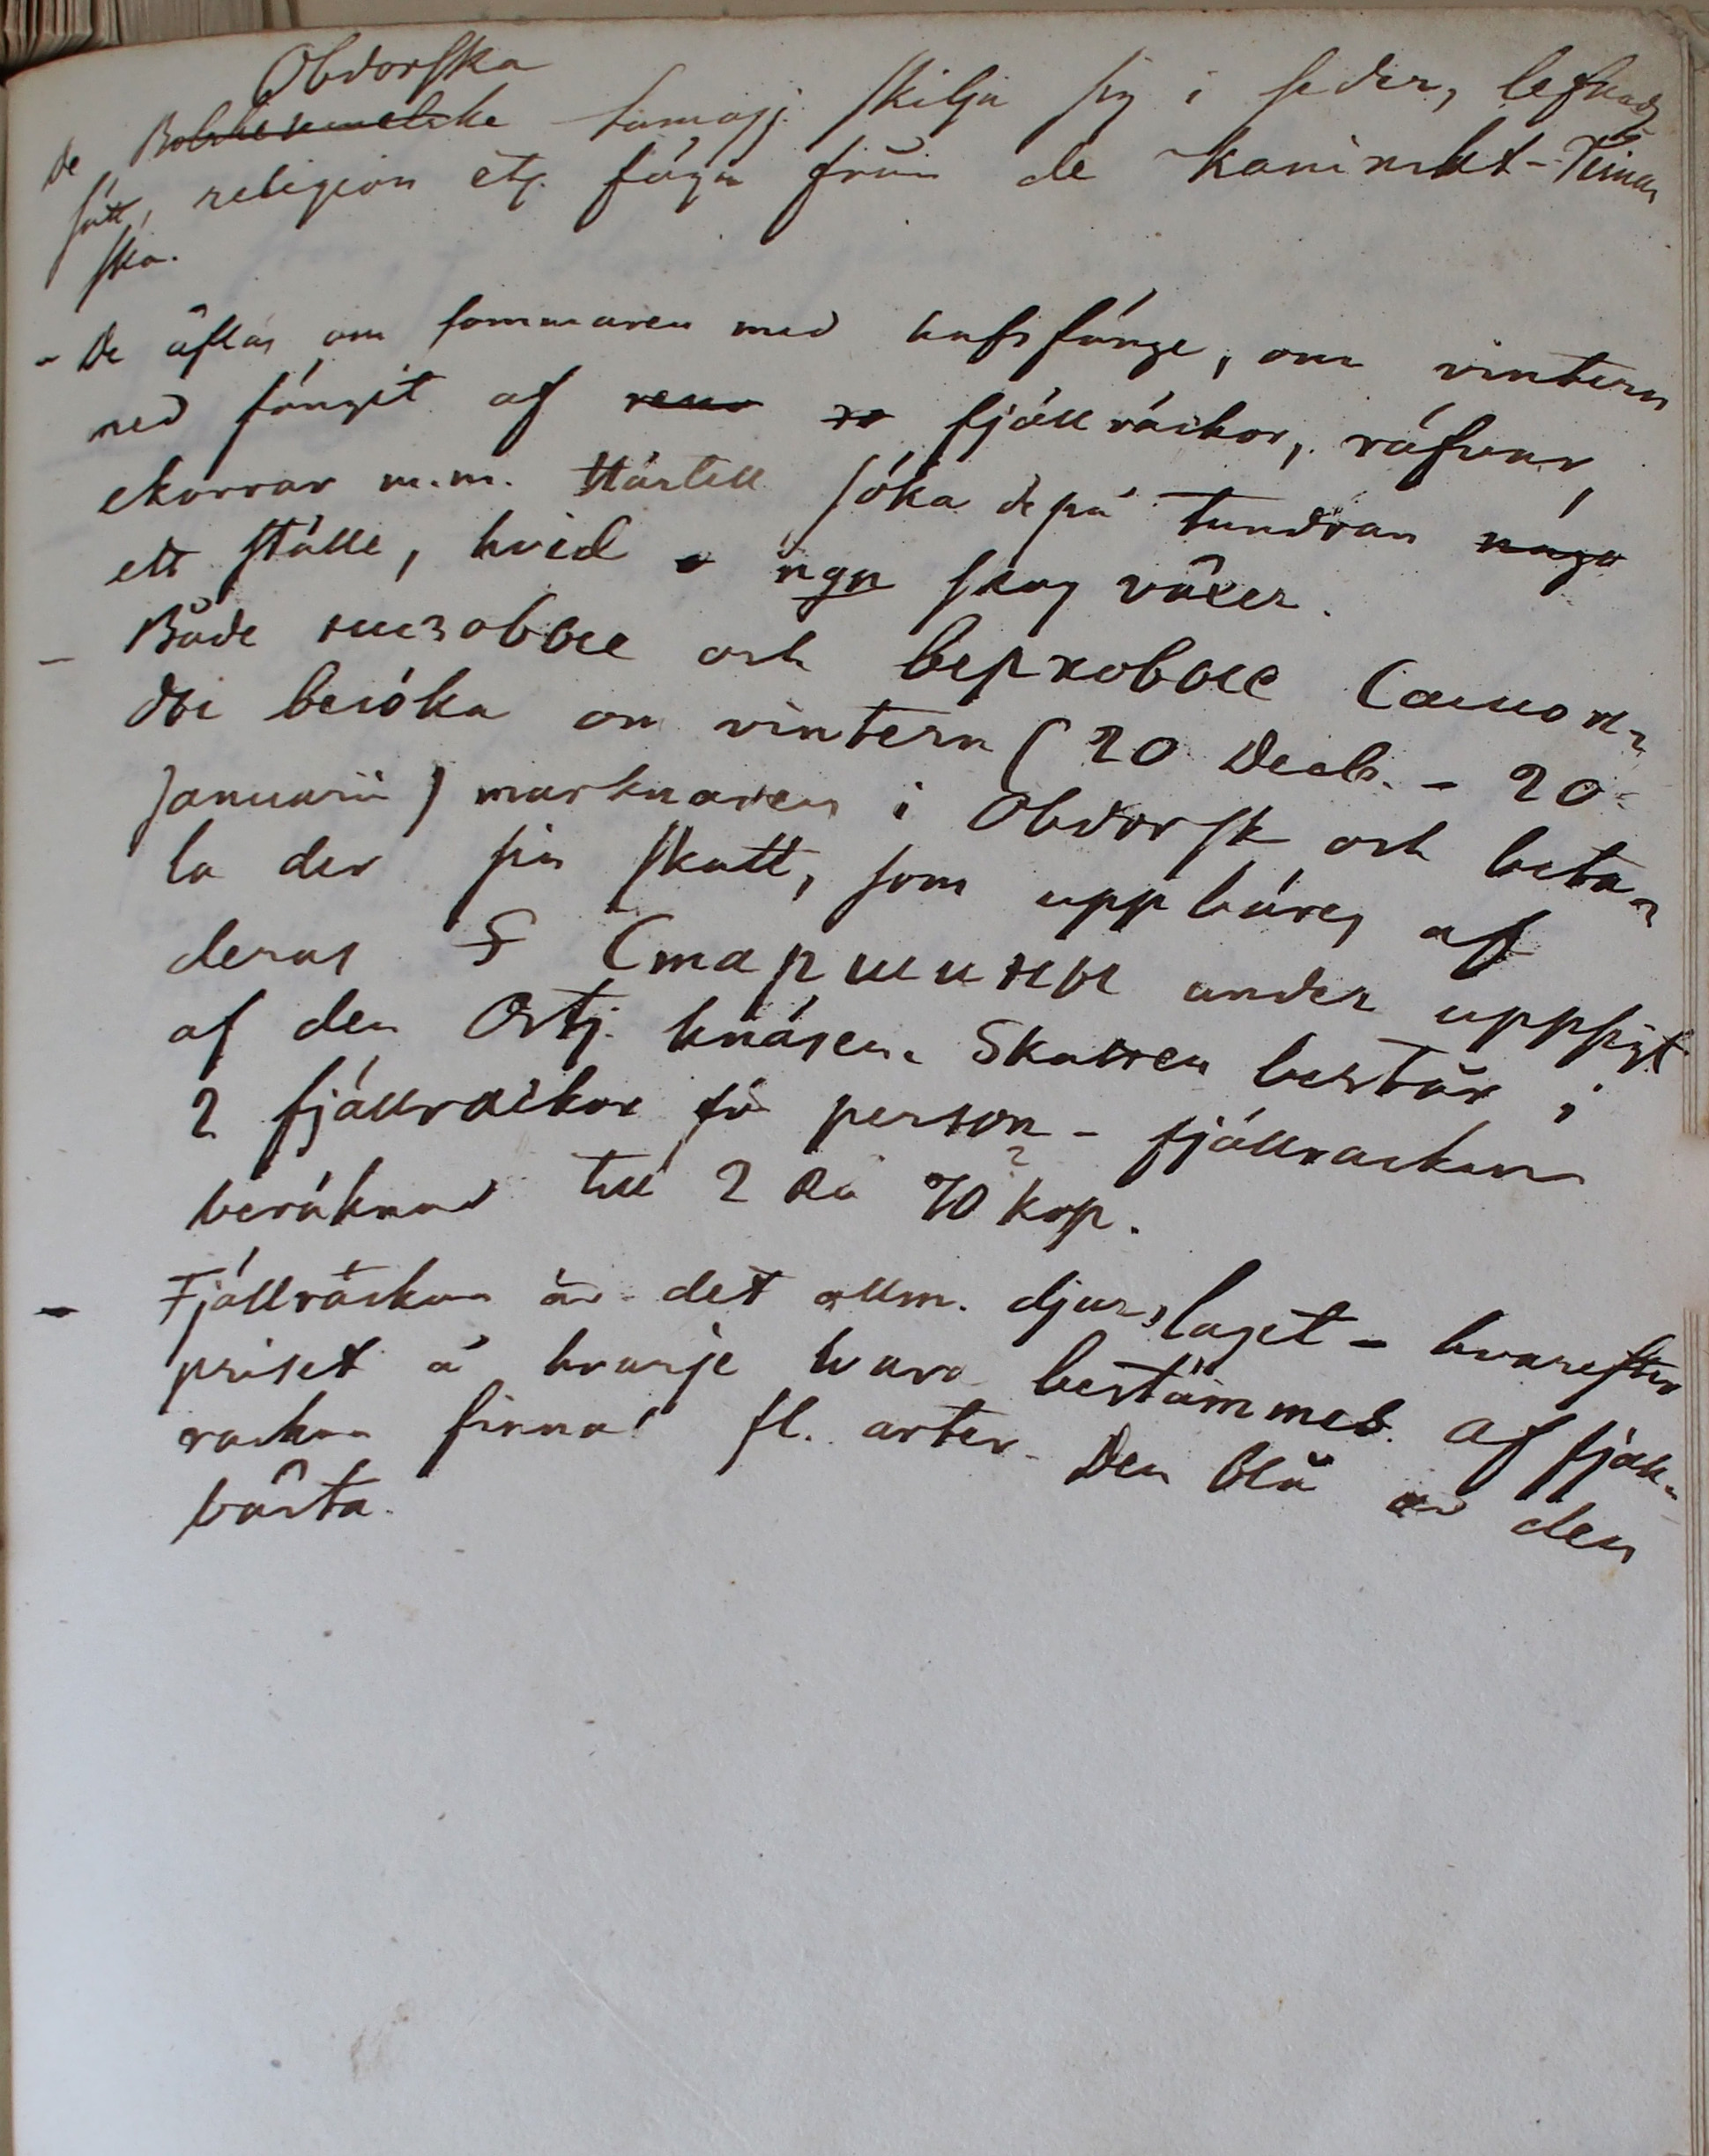 Obdorska
De Bolschesemelske Samoj. skilja sig i seder, lefnads
sätt, religion etc. föga från de Kaninskt-Timan
ska.
- De äflas om sommaren med hafsfånge, om vintern
med fånget af rena ra fjällrackor, räfvar,
ekorrar m.m. Härtill söka de på tundran någo
ett ställe, hvid o ngn skog växer.
- Både низовые och верховые Самоѣ-
ды besöka om vintern (20 Decb. - 20
Januarii) marknaden i Obdorsk och beta-
la der sin skatt, som uppbäres af
deras S Старшины under uppsigt
af den Ostj. knäsen. Skatten består i
2 fjällrackor på person - fjällrackan
beräknad till 2 Ru 70 kop.
- Fjällrackan är det allm. djurslaget - hvarefter
priset å hvarje vara bestämmes. Af fjäll-
rackan finnas fl. arter - Den blå är den
bästa.